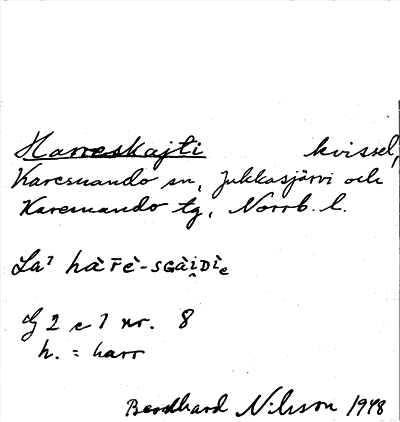 Harreskajti kvissel,
Karesuando sn, Jukkasjärvi och
Karesuando tg, Norrb. l.
La? hàr̄è-sGài̯Dìe
G 2 c 7 nr. 8
h. = harr
Bernhard Nilsson 1948